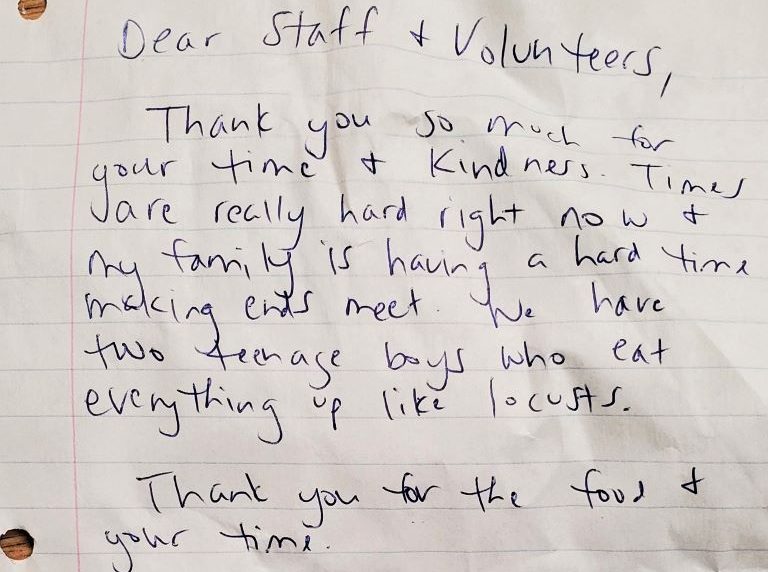 Dear Staff & Volunteers,
Thank you so much for
your time & Kindness. Times
are really hard right now &
my family is having a hard time
making ends meet. We have
two teenage boys who eat
everything up like locusts.
Thank you for the food &
your time.